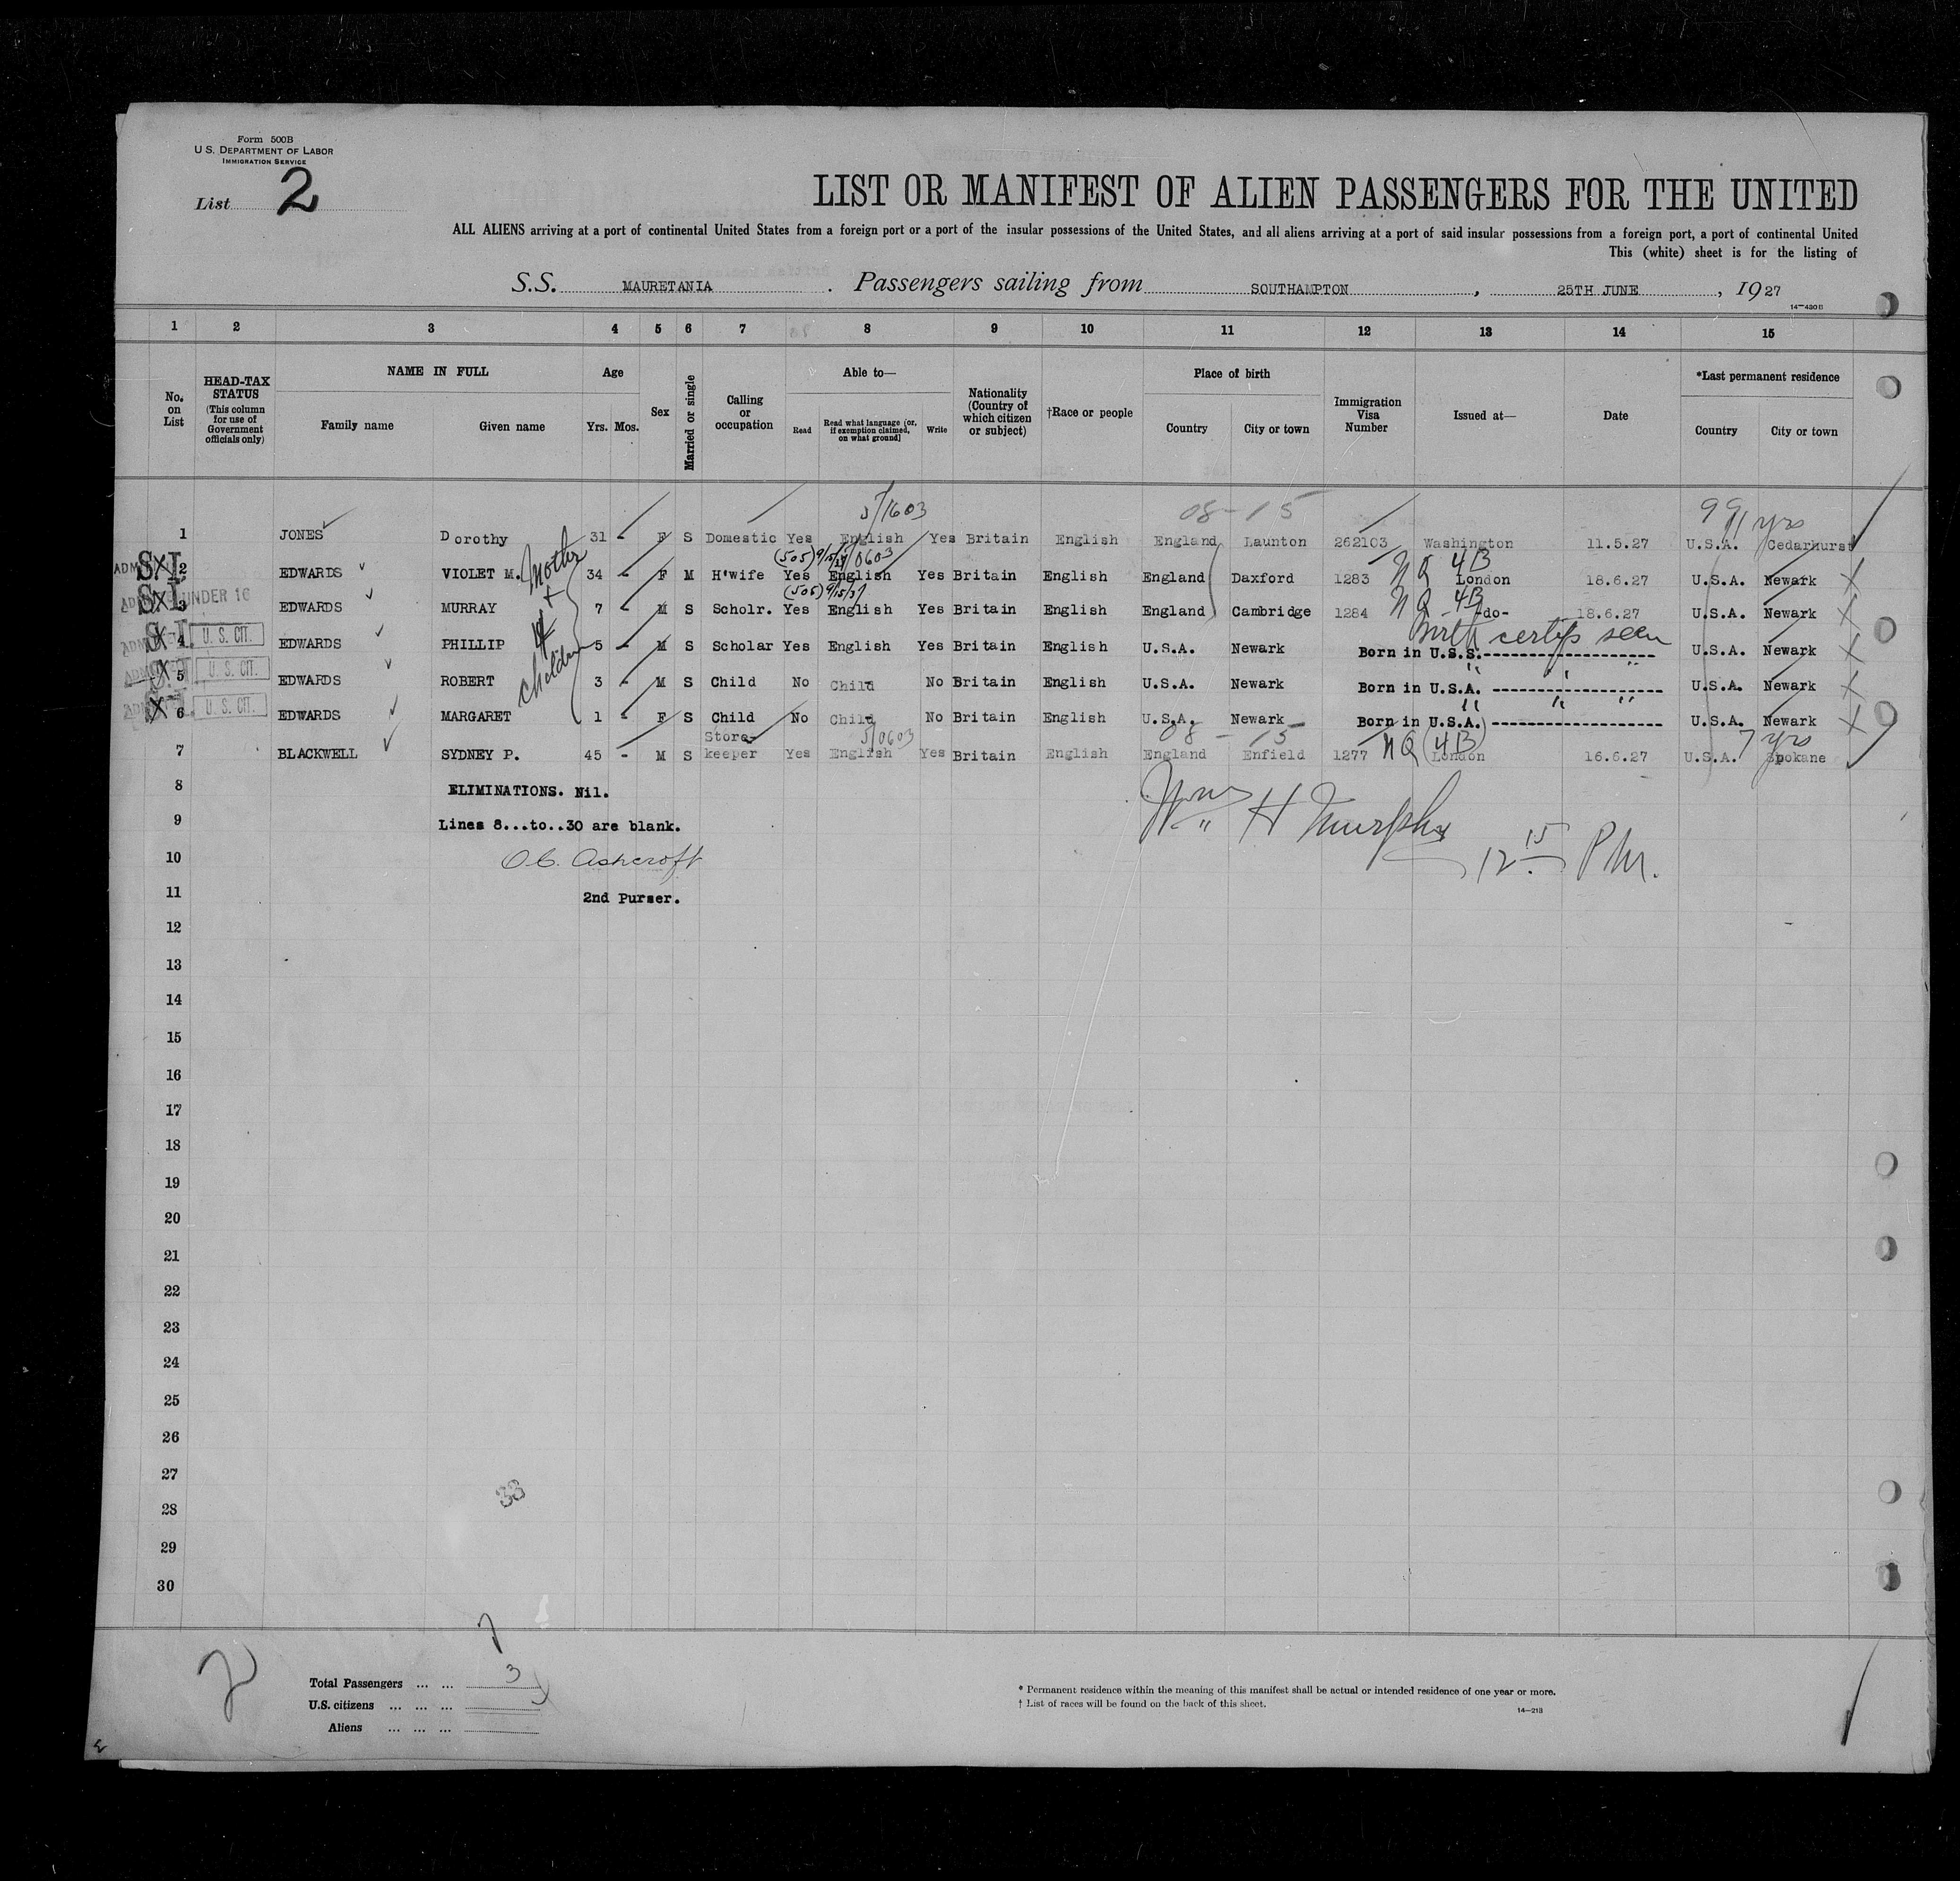 Form 500B
U.S. DEPARTMENT OF LABOR
IMMIGRATION SERVICE
List 2
LIST OR MANIFEST OF ALIEN PASSENGERS FOR THE UNITED
ALL ALIENS arriving at a port of continental United States from a foreign port or a port of the insular possessions of the United States, and all aliens arriving at a port of said insular possessions from a foreign port, a port of continental United
This (white) sheet is for the listing of
S.S. MAURETANIA. Passengers sailing from SOUTHAMPTON, 25TH JUNE, 1927
14—430B
1 2 3 4 5 6 7 8 9 10 11 12 13 14 15
No. on List
HEAD-TAX STATUS (This column for use of Government officials only)
NAME IN FULL
Family name Given name
Age
Yrs. Mos.
Sex
Married or single
Calling or occupation
Able to—
Read Read what language (or, if exemption claimed, on what ground) Write
Nationality (Country of which citizen or subject)
†Race or people
Place of birth
Country City or town
Immigration Visa Number
Issued at—
Date
*Last permanent residence
Country City or town
5/1603 08-15 yrs
1 JONES Dorothy 31 - F S Domestic Yes English Yes Britain English England Launton 262103 Washington 11.5.27 U.S.A. Cedarhurst
Mother + 4 children
(505) 0603 NQ 4B
S.I. 2 EDWARDS VIOLET M. 34 - F M H'wife Yes English Yes Britain English England Daxford 1283 London 18.6.27 U.S.A. Newark X
(505) NQ 4B
S.I. 3 UNDER 16 EDWARDS MURRAY 7 - M S Scholr. Yes English Yes Britain English England Cambridge 1284 -do- 18.6.27 U.S.A. Newark X
Birth certifs seen
S.I. 4 U.S. CIT. EDWARDS PHILLIP 5 - M S Scholar Yes English Yes Britain English U.S.A. Newark Born in U.S.S.-------------------- U.S.A. Newark X
" " "
5 U.S. CIT. EDWARDS ROBERT 3 - M S Child No Child No Britain English U.S.A. Newark Born in U.S.A. -------------------- U.S.A. Newark X
" " "
6 U.S. CIT. EDWARDS MARGARET 1 - F S Child No Child No Britain English U.S.A. Newark Born in U.S.A. -------------------- U.S.A. Newark X
5/0603 08 - 15 NQ (4B) 7 yrs
7 BLACKWELL SYDNEY P. 45 - M S Store-keeper Yes English Yes Britain English England Enfield 1277 London 16.6.27 U.S.A. Spokane
8 ELIMINATIONS. Nil.
9 Lines 8...to..30 are blank.
Wm H Murphy 12.15 PM.
10 O.C. Ashcroft
11 2nd Purser.
12
13
14
15
16
17
18
19
20
21
22
23
24
25
26
27
28
29
30
33
2
7
Total Passengers ... ... 3
U.S. citizens ... ... ...
Aliens ... ... ...
* Permanent residence within the meaning of this manifest shall be actual or intended residence of one year or more.
† List of races will be found on the back of this sheet.
14—213